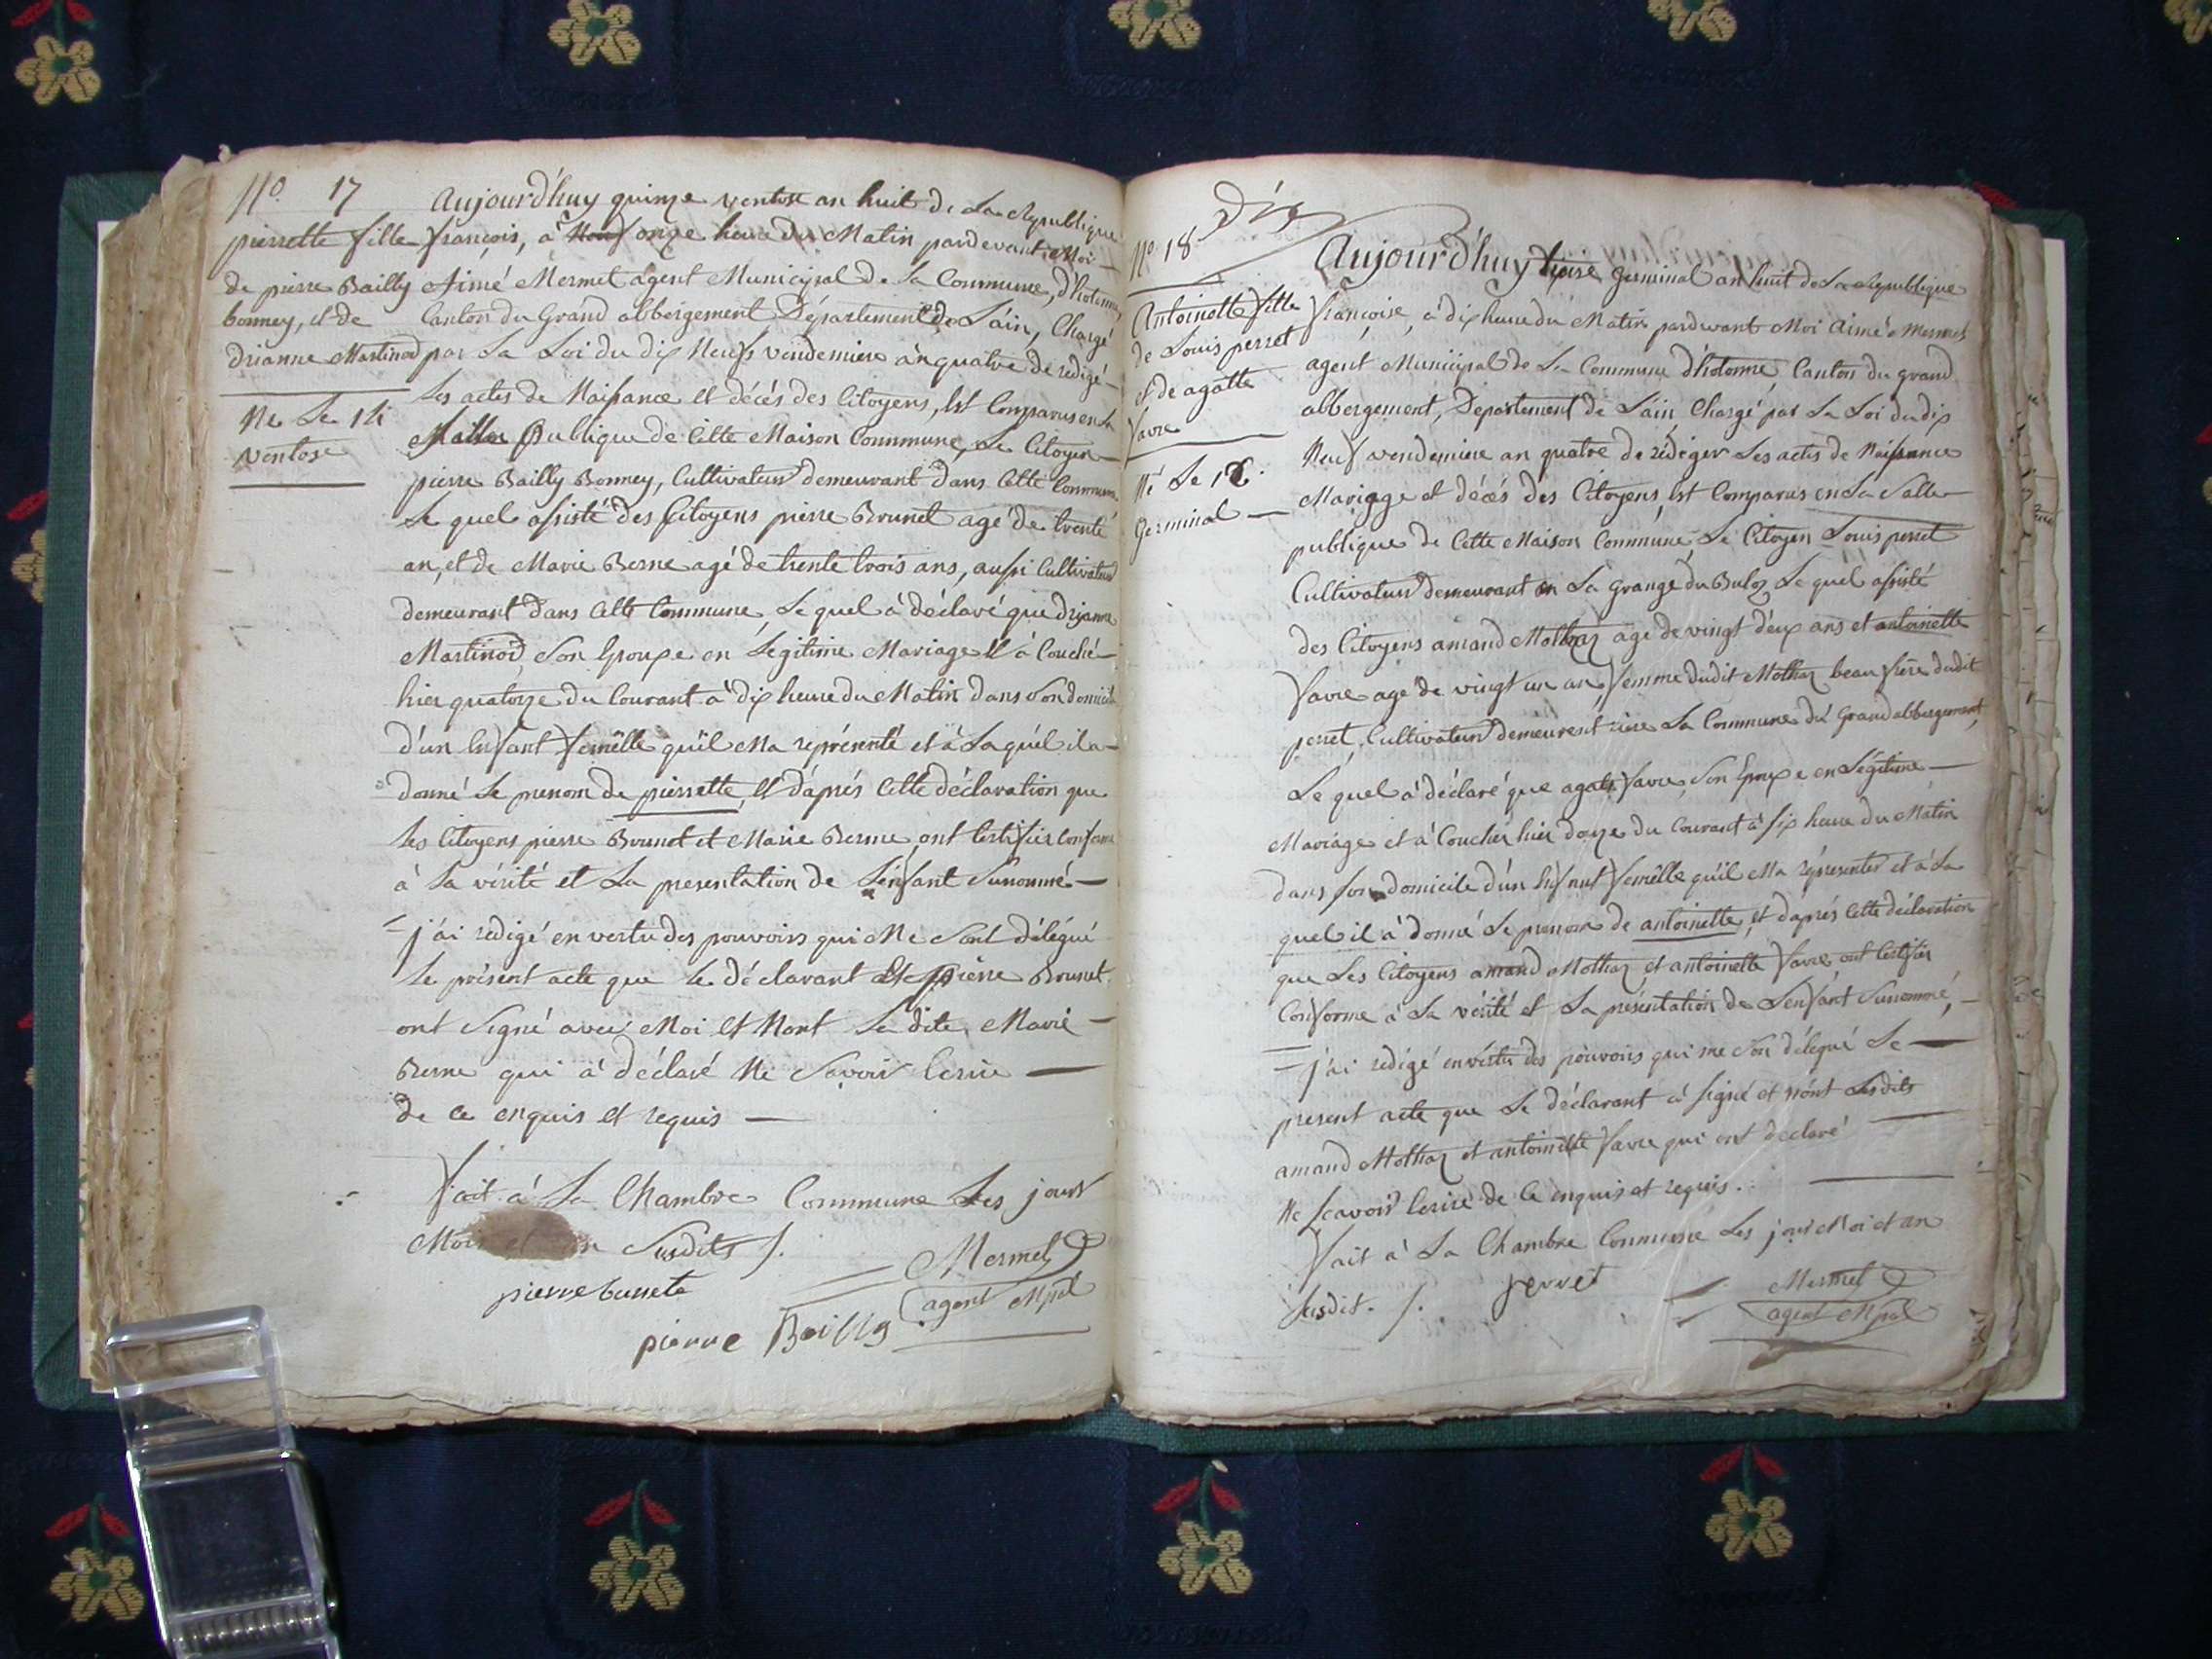 No. 17
pierrette fille
de pierre Bailly
bonney, et de
drianne Martinod
Ne Le 14
ventose
Aujourd'huy quinze ventose an huit de La Republique
françois, à onze heure du Matin pardevant Moi
Aimé Mermet agent Municipal de La Commune d'hotonne,
Canton du Grand abbergement Département de Lain, Chargé
par La Loi du dix Neuf vendemiere an quatre de redigé
Les actes de Naissance et décés des Citoyens, est Comparus en La
Salle Publique de Cette Maison Commune, Le Citoyen
pierre Bailly Bonney, Cultivateur demeurant dans Cette Commune
Le quel assisté des Citoyens pierre Brunet agé de trente
an, et de Marie Berne agé de trente trois ans, aussi Cultivateur
demeurant dans Cette Commune, Le quel à déclaré que drianne
Martinod Son Epouse en Légitime Mariage à Couché
hier quatorze du Courant à dix heure du Matin dans Son domicile
d'un Enfant femêlle qu'il Ma représenté et à Laquél il a
donné Le prenom de pierrette, et d'áprés Cette déclaration que
Les Citoyens pierre Brunet et Marie Berne ont Certifiér Conforme
à La vérité et La presentation de Lénfant Sunommé
j'ai redigé en vertu des pouvoirs qui Me Sont délégué
Le présent acte que Le déclarant Et pierre Brunet
ont Signé avec Moi et Nont La dite Marie
Berne qui à déclaré Ne Savoir Ecrire
de Ce enquis et requis
fait à La Chambre Commune Les jour
Mois et an Susdits /.
pierre burnete
Mermet
agent Mpal
pierre Bailly
No. 18
Antoinette fille
de Louis perret
et de agatte
favre
Né Le 12
Germinal
Aujourd'huy treise germinal an huit de La Republique
françoise, à dix heure du Matin pardevant Moi Aimé Mermet
agent Municipal de La Commune d'hotonne, Canton du grand
abbergement, Departement de Lain, Chargé par La Loi du dix
Neuf vendemiere an quatre de rédiger Les actes de Naissance
Mariage et décés des Citoyens, est Comparus en La Salle
publique de Cette Maison Commune, Le Citoyen Louis perret
Cultivateur demeurant en La Grange du Buloz Le quel assisté
des Citoyens amand Mothaz age de vingt deux ans et antoinette
favre age de vingt un an, femme dudit Mothaz beau frère dudit
perret, Cultivateur demeurent riere La Commune du Grand abbergement,
Le quel à déclaré que agate favre, Son Epouse en Légitime
Mariage et à Couchér hier doize du Courant à six heure du Matin
dans son domicile d'ún Enfant femêlle quil Ma répresenter et à La
quel il à donné Le prenom de antoinette, et d'áprés Cette déclaration
que Les Citoyens amand Mothaz et antoinette favre ont Certifiér
Conforme à La vérité et La présentation de Lenfant Sunommé,
j'ai redigé en vértu des pouvoirs qui me Son délégué Le
present acte que Le déclarant à signé et nónt Lesdits
amand Mothaz et antoinette favre qui ont declaré
Ne scavoir Ecrire de Ce enquis et requis.
fait à La Chambre Commune Les jour Moi et an
Susdit. /.
perret
Mermet
agent Mpal